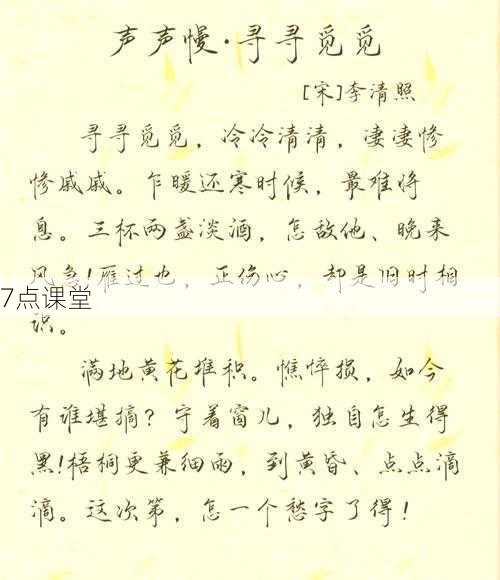 声声慢·寻寻觅觅
[宋]李清照
寻寻觅觅，冷冷清清，凄凄惨
惨戚戚。乍暖还寒时候，最难将
息。三杯两盏淡酒，怎敌他、晚来
风急!雁过也，正伤心，却是旧时相
7点课堂
识。
满地黄花堆积。憔悴损，如今
有谁堪摘？守着窗儿，独自怎生得
黑!梧桐更兼细雨，到黄昏、点点滴
滴。这次第，怎一个愁字了得！